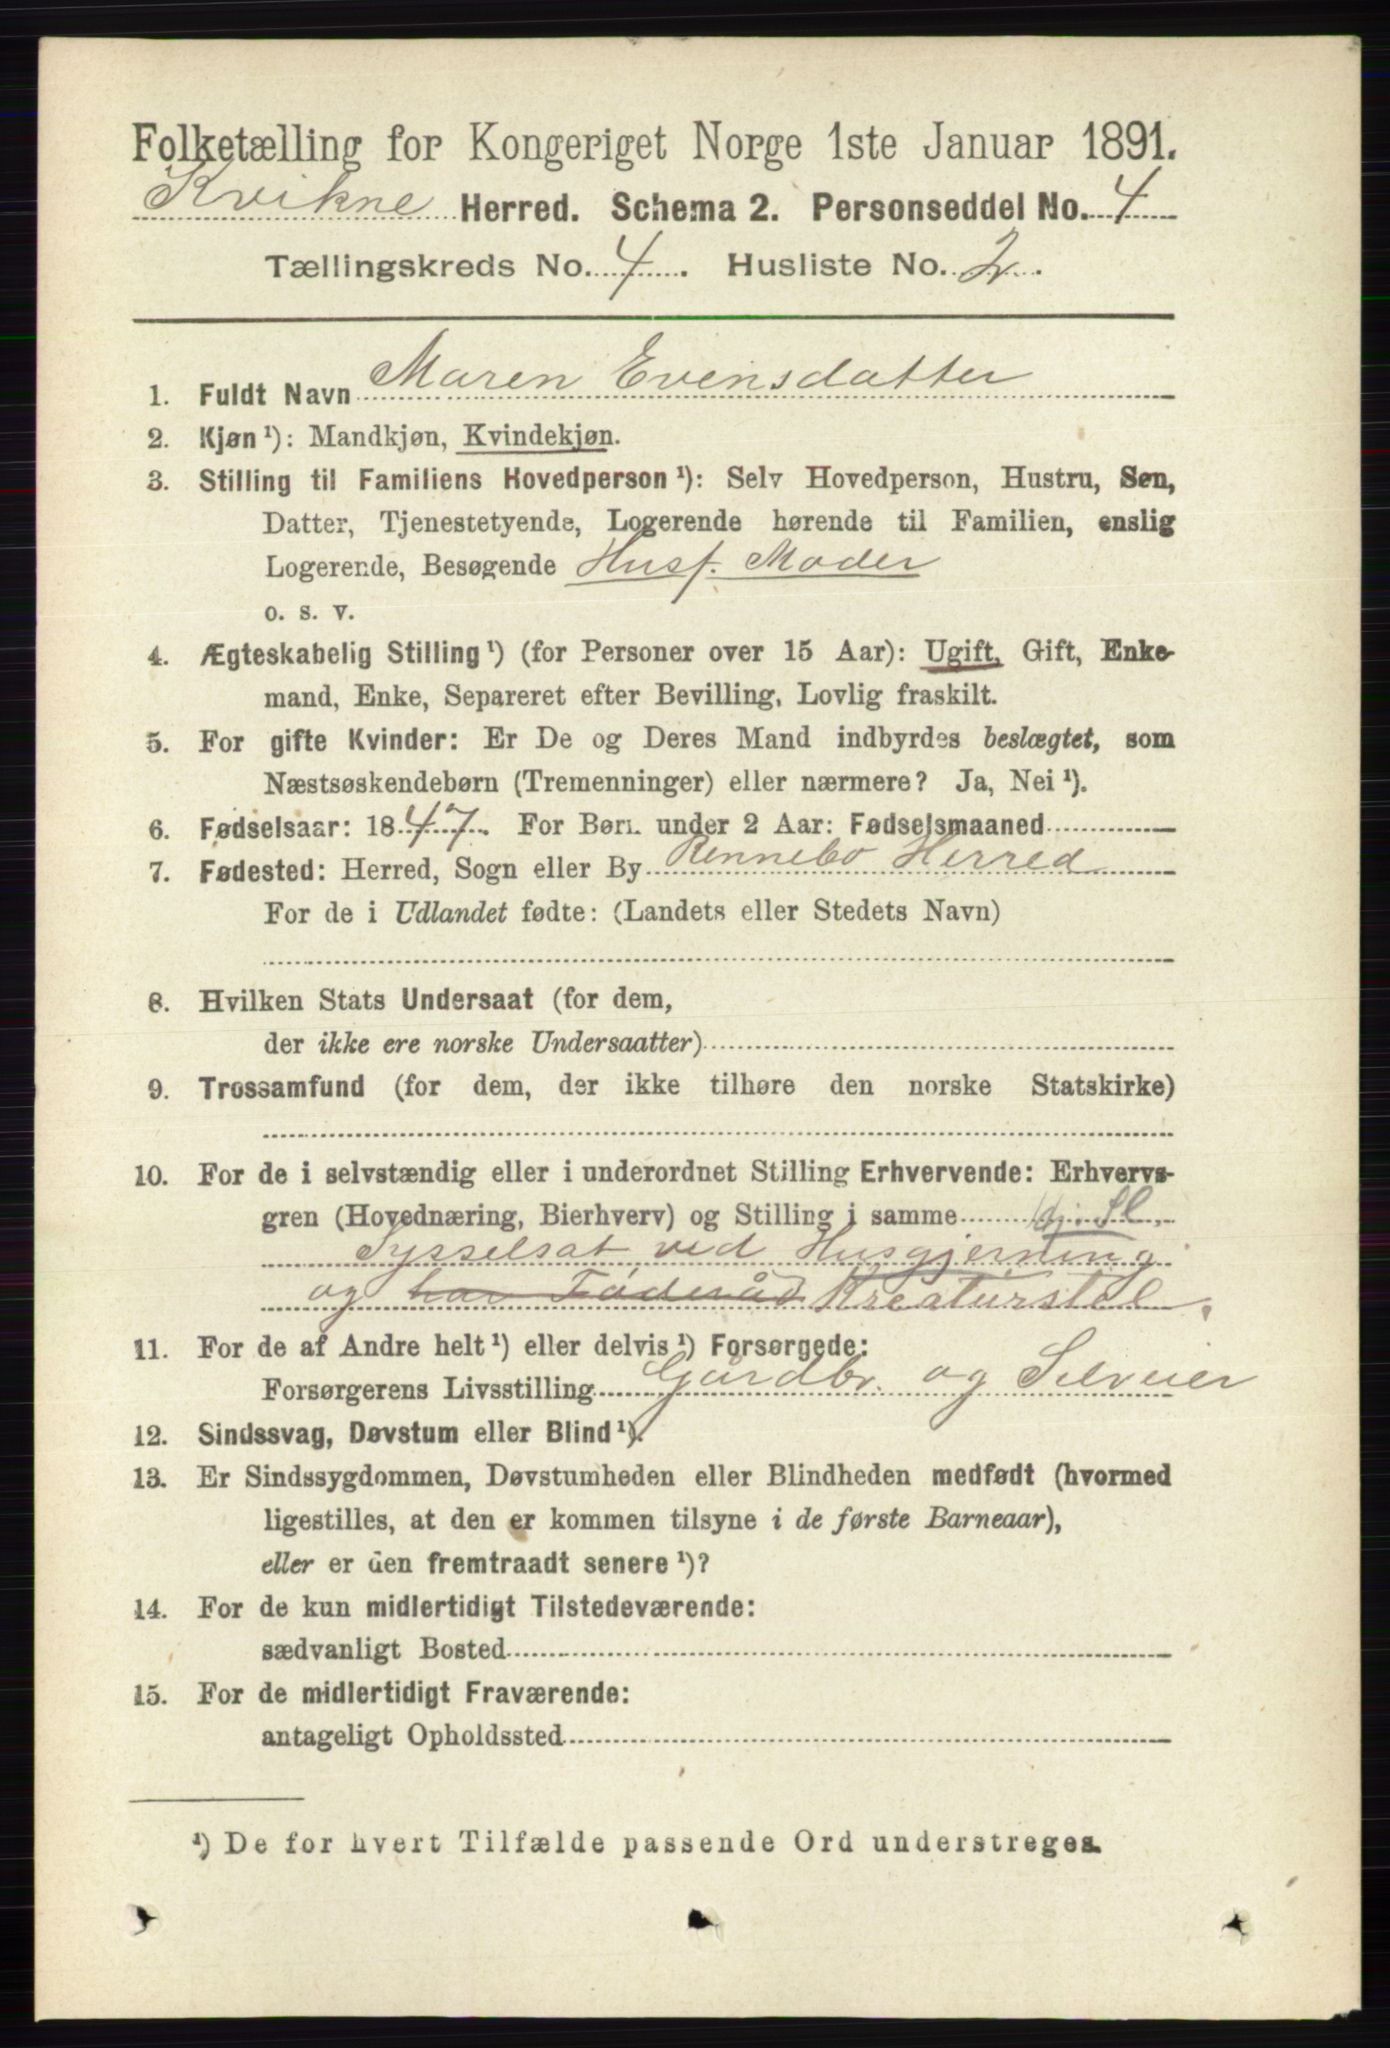 Folketælling for Kongeriget Norge 1ste Januar 1891.
Kvikne Herred. Schema 2. Personseddel No. 4
Tællingskreds No. 4. Husliste No. 2.
1. Fuldt Navn Maren Evensdatter
2. Kjøn¹): Mandkjøn, Kvindekjøn.
3. Stilling til Familiens Hovedperson¹): Selv Hovedperson, Hustru, Søn,
Datter, Tjenestetyende, Logerende hørende til Familien, enslig
Logerende, Besøgende Husf. Moder
o. s. v.
4. Ægteskabelig Stilling¹) (for Personer over 15 Aar): Ugift, Gift, Enke-
mand, Enke, Separeret efter Bevilling, Lovlig fraskilt.
5. For gifte Kvinder: Er De og Deres Mand indbyrdes beslægtet, som
Næstsøskendebørn (Tremenninger) eller nærmere? Ja, Nei¹).
6. Fødselsaar: 1847. For Børn under 2 Aar: Fødselsmaaned
7. Fødested: Herred, Sogn eller By Rennebo Herred
For de i Udlandet fødte: (Landets eller Stedets Navn)
8. Hvilken Stats Undersaat (for dem,
der ikke ere norske Undersaatter)
9. Trossamfund (for dem, der ikke tilhøre den norske Statskirke)
10. For de i selvstændig eller i underordnet Stilling Erhvervende: Erhvervs-
gren (Hovednæring, Bierhverv) og Stilling i samme
Sysselsat ved Husgjerning
og har Föderåd Kreaturstel.
11. For de af Andre helt¹) eller delvis¹) Forsørgede:
Forsørgerens Livsstilling Gårdbr. og Selveier
12. Sindssvag, Døvstum eller Blind¹).
13. Er Sindssygdommen, Døvstumheden eller Blindheden medfødt (hvormed
ligestilles, at den er kommen tilsyne i de første Barneaar),
eller er den fremtraadt senere¹)?
14. For de kun midlertidigt Tilstedeværende:
sædvanligt Bosted
15. For de midlertidigt Fraværende:
antageligt Opholdssted
¹) De for hvert Tilfælde passende Ord understreges.